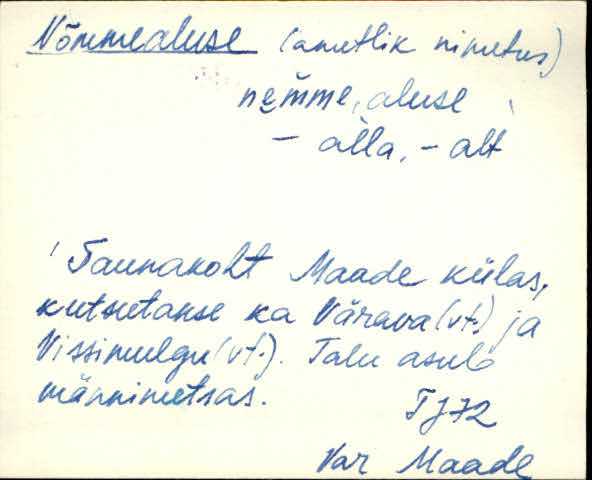 Nõmmealuse (ametlik nimetus)
nemme, aluse
- alla, - alt
Saunakoht Maade külas,
kutsutakse ka Värava (vt.) ja
Vissimulgu (vt.). Talu asub
männimetsas.
TJ72
Var Maade